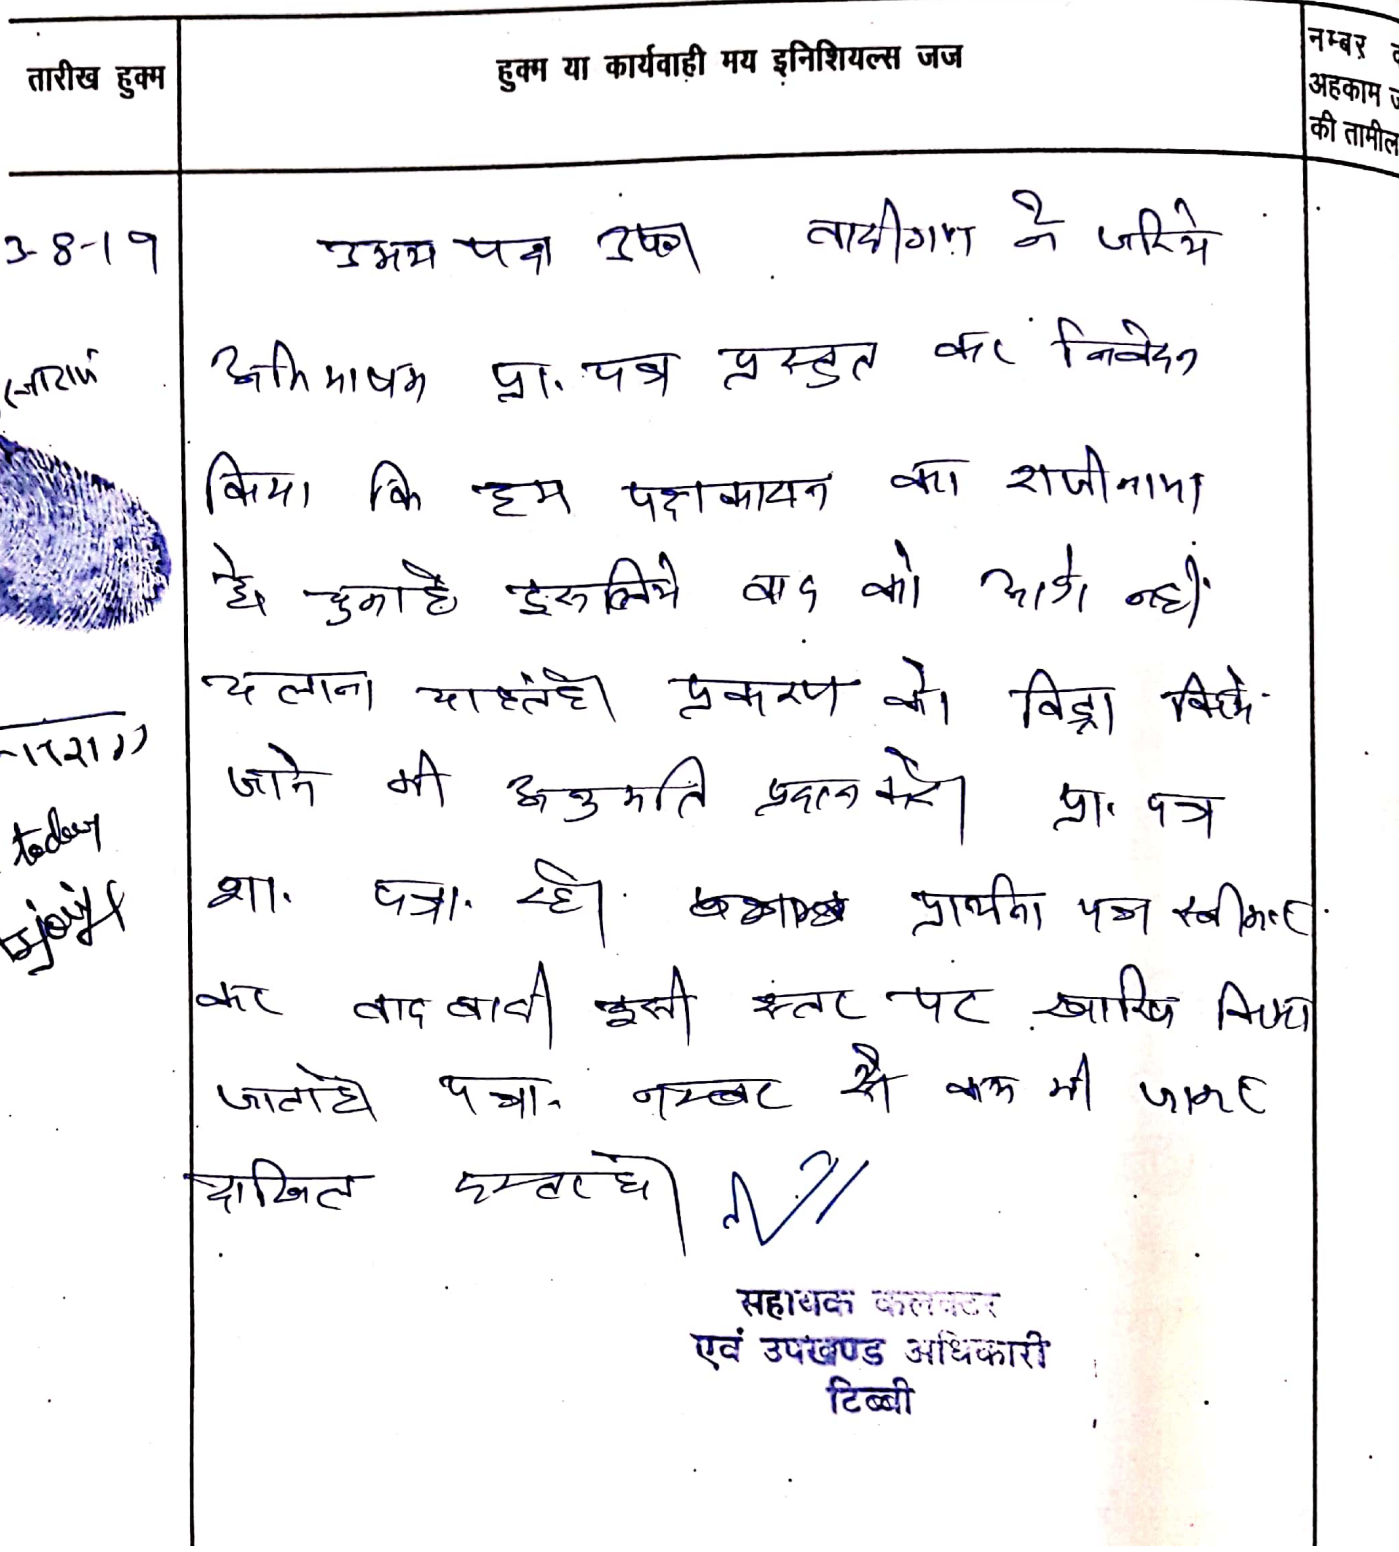 तारीख हुक्म
हुक्म या कार्यवाही मय इनिशियल्स जज
नम्बर
अहकाम
की तामील
3-8-19
उभय पक्ष उप० वादीगण ने जरिये
अभिभाषक प्रा. पत्र प्रस्तुत कर निवेदन
किया कि हम पक्षकारान का राजीनामा
हो चुका है इसलिये वाद को आगे नहीं
चलाना चाहते है। प्रकरण को विड्रा किये
जाने की अनुमति प्रदान करे। प्रा. पत्र
शा. पत्रा. रहे। प्रार्थना पत्र स्वीकार
कर वाद वादी इसी स्तर पर खारिज किया
जाता है पत्रा. नम्बर से कम की जाकर
दाखिल दफ्तर हो।
today
सहायक कलक्टर
एवं उपखण्ड अधिकारी
टिब्बी